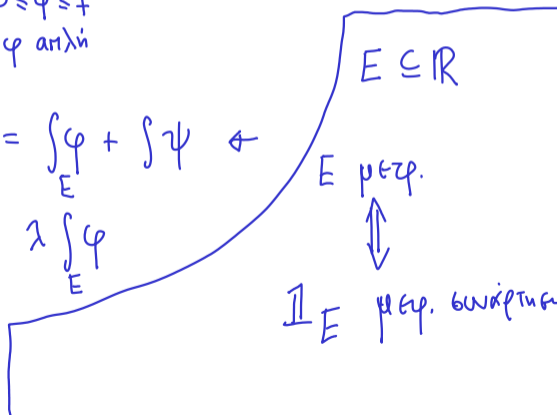 0 ≤ φ ≤ f
φ απλή
= ∫_E φ + ∫ ψ ←
λ ∫_E φ
E ⊆ ℝ
E μετρ.
⇕
𝟙_E μετρ. συνάρτηση